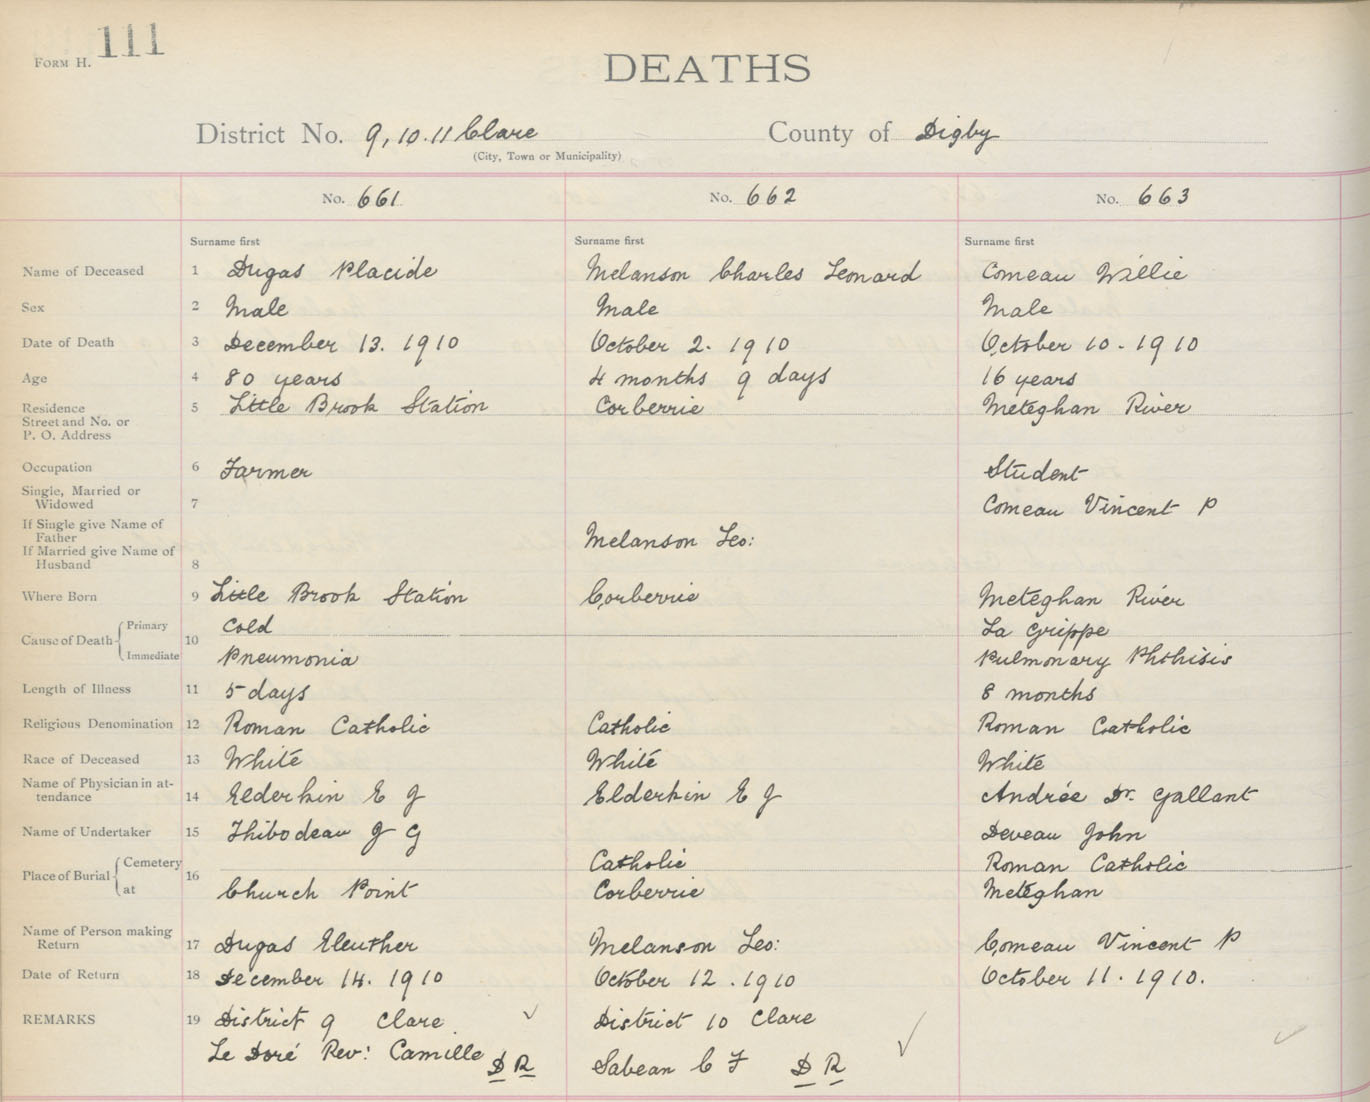 FORM H. 111
DEATHS
District No. 9, 10. 11 Clare County of Digby
(City, Town or Municipality)
No. 661 No. 662 No. 663
Surname first Surname first Surname first
Name of Deceased 1 Dugas Placide Melanson Charles Leonard Comeau Willie
Sex 2 Male Male Male
Date of Death 3 December 13. 1910 October 2. 1910 October 10. 1910
Age 4 80 years 4 months 9 days 16 years
Residence 5 Little Brook Station Corberrie Meteghan River
Street and No. or
P. O. Address
Occupation 6 Farmer Student
Single, Married or
Widowed 7 Comeau Vincent P
If Single give Name of
Father Melanson Leo:
If Married give Name of
Husband 8
Where Born 9 Little Brook Station Corberrie Meteghan River
Cause of Death Primary 10 Cold La Grippe
Immediate Pneumonia Pulmonary Phthisis
Length of Illness 11 5 days 8 months
Religious Denomination 12 Roman Catholic Catholic Roman Catholic
Race of Deceased 13 White White White
Name of Physician in at-
tendance 14 Elderkin E J Elderkin E J Andrée Dr. Gallant
Name of Undertaker 15 Thibodeau J G Deveau John
Place of Burial Cemetery 16 Catholic Roman Catholic
at Church Point Corberrie Meteghan
Name of Person making
Return 17 Dugas Eleuther Melanson Leo: Comeau Vincent P
Date of Return 18 December 14. 1910 October 12. 1910 October 11. 1910.
REMARKS 19 District 9 Clare District 10 Clare
Le Doré Rev: Camille D R Sabean C F D R